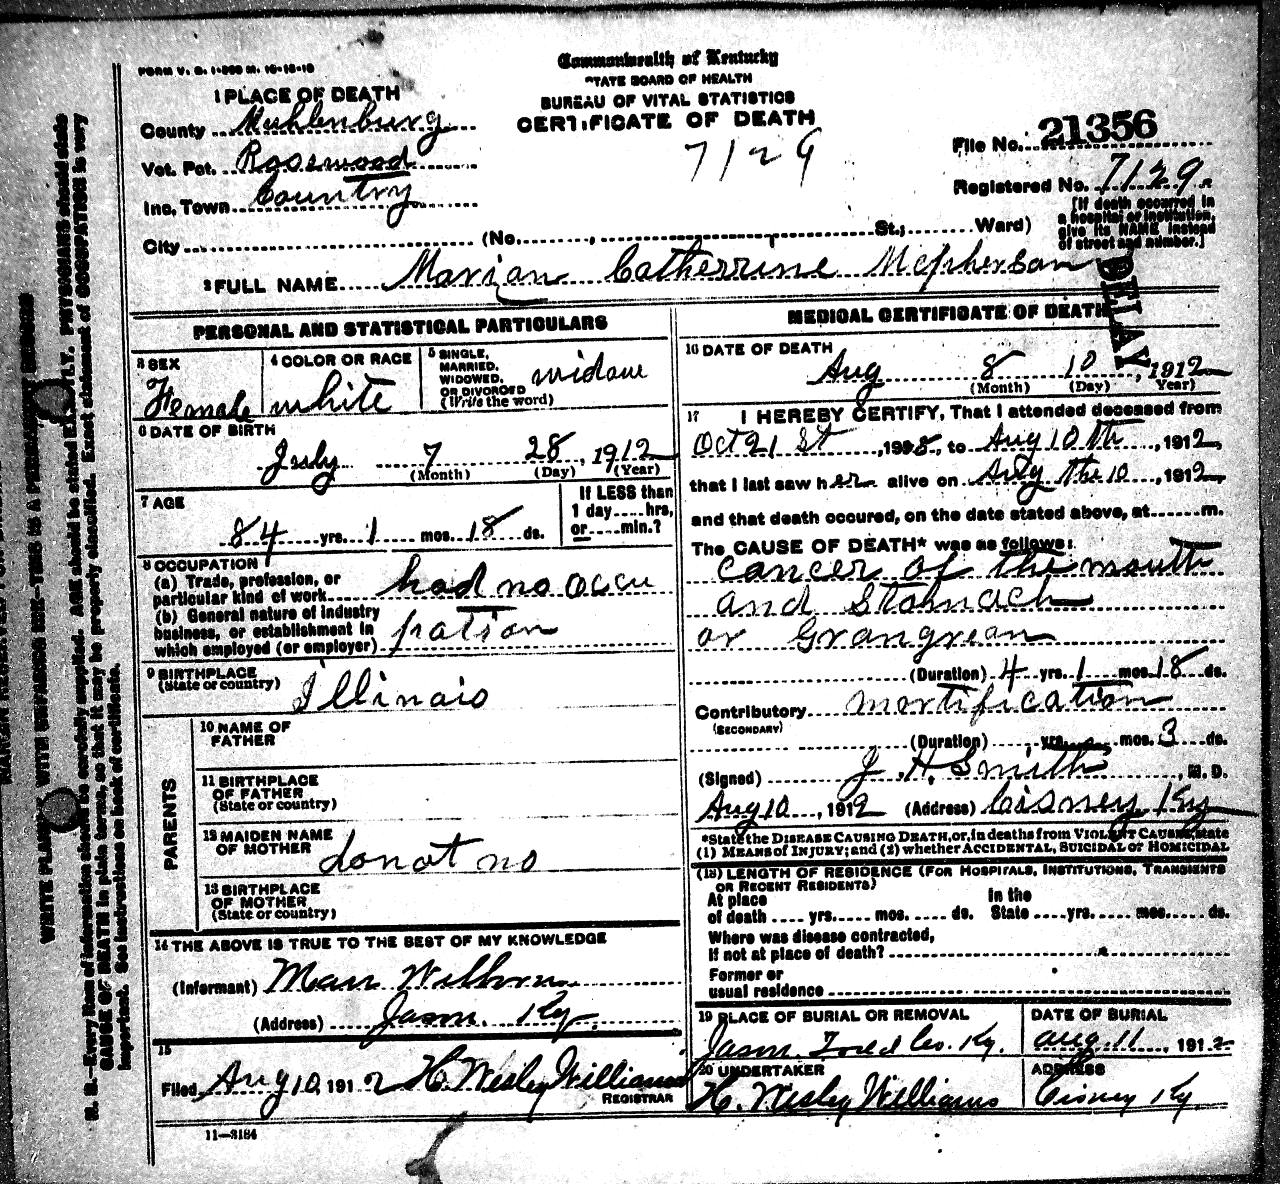 FORM V. S. 1-
Commonwealth of Kentucky
STATE BOARD OF HEALTH
BUREAU OF VITAL STATISTICS
CERTIFICATE OF DEATH
7129
1 PLACE OF DEATH
County Muhlenburg
Vot. Pct. Rosewood
Inc. Town Country
City (No. , St.; Ward)
File No. 21356
Registered No. 7129
[If death occurred in
a hospital or institution,
give its NAME instead
of street and number.]
2 FULL NAME Marian Catherrine Mcpherson
DELAY
PERSONAL AND STATISTICAL PARTICULARS
3 SEX
Female
4 COLOR OR RACE
white
5 SINGLE,
MARRIED,
WIDOWED,
OR DIVORCED
(Write the word)
widow
6 DATE OF BIRTH
July 7 28, 1912
(Month) (Day) (Year)
7 AGE
84 yrs. 1 mos. 18 ds.
If LESS than
1 day hrs,
or min.?
8 OCCUPATION
(a) Trade, profession, or
particular kind of work had no occu
(b) General nature of industry
business, or establishment in
which employed (or employer) pation
9 BIRTHPLACE
(State or country) Illinois
PARENTS
10 NAME OF
FATHER
11 BIRTHPLACE
OF FATHER
(State or country)
12 MAIDEN NAME
OF MOTHER do not no
13 BIRTHPLACE
OF MOTHER
(State or country)
14 THE ABOVE IS TRUE TO THE BEST OF MY KNOWLEDGE
(Informant)
(Address) Jason. Ky.
15
Filed Aug 10, 1912 H. Wesley Williams
REGISTRAR
11-3184
MEDICAL CERTIFICATE OF DEATH
16 DATE OF DEATH
Aug 8 10, 1912
(Month) (Day) Year)
17 I HEREBY CERTIFY, That I attended deceased from
Oct 21 st, to Aug 10 th, 1912,
that I last saw her alive on the 10, 1912,
and that death occured, on the date stated above, at m.
The CAUSE OF DEATH* was as follows:
cancer of the mouth
and Stomach
or Grangrean
(Duration) 4 yrs. 1 mos. 18 ds.
Contributory mortification
(SECONDARY)
(Duration) yrs. mos. 3 ds.
(Signed) J. H. Smith, M. D.
Aug 10, 1912 (Address) Cisney Ky
*State the DISEASE CAUSING DEATH, or, in deaths from VIOLENT CAUSES, state
(1) MEANS of INJURY; and (2) whether ACCIDENTAL, SUICIDAL or HOMICIDAL
(18) LENGTH OF RESIDENCE (FOR HOSPITALS, INSTITUTIONS, TRANSIENTS
OR RECENT RESIDENTS)
At place
of death yrs. mos. ds.
In the
State yrs. mos. ds.
Where was disease contracted,
If not at place of death?
Former or
usual residence
19 PLACE OF BURIAL OR REMOVAL
Jason Todd Co. Ky.
DATE OF BURIAL
aug. 11, 1912
20 UNDERTAKER
H. Wesley Williams
ADDRESS
Cisney Ky.
WRITE PLAINLY WITH UNFADING INK—THIS IS A PERMANENT RECORD
N. B.—Every item of information should be carefully supplied. AGE should be stated EXACTLY. PHYSICIANS should state
CAUSE OF DEATH in plain terms, so that it may be properly classified. Exact statement of OCCUPATION is very
important. See instructions on back of certificate.